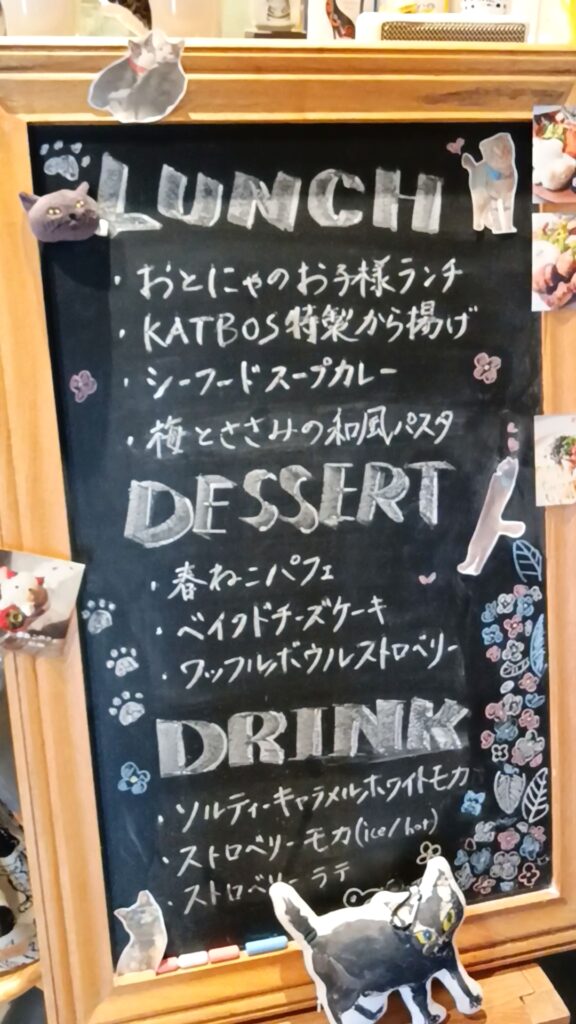 LUNCH
・おとにゃのお子様ランチ
・KATBOS特製から揚げ
・シーフードスープカレー
・梅とささみの和風パスタ
DESSERT
・春ねこパフェ
・ベイクドチーズケーキ
・ワッフルボウルストロベリー
DRINK
・ソルティーキャラメルホワイトモカ
・ストロベリーモカ(ice/hot)
・ストロベリーラテ